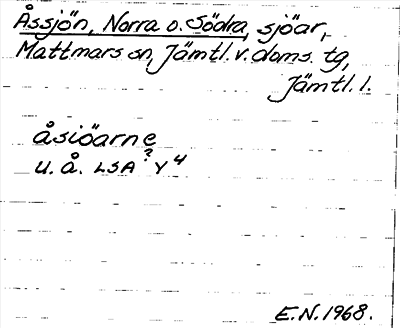 Åssjön, Norra o. Södra, sjöar,
Mattmars sn, Jämtl. v. doms. tg,
Jämtl. l.
åsiöarne
u. å. LSA ? Y 4
E.N. 1968.